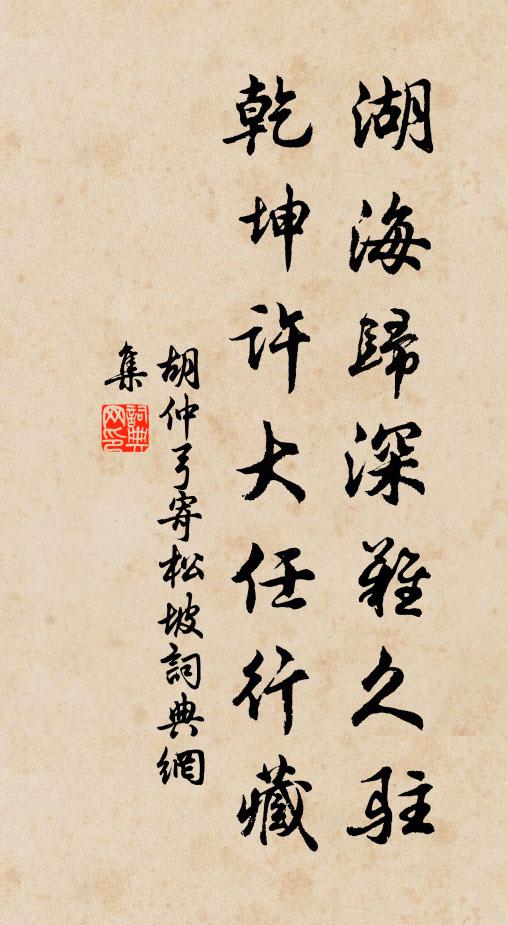 湖海歸深難久駐
乾坤許大任行藏
胡仲弓寄松坡詞典網
集
詞典
网印